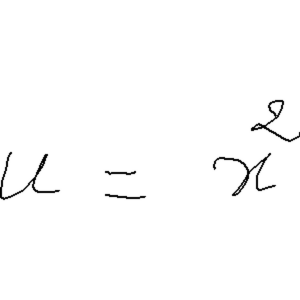 u = x²